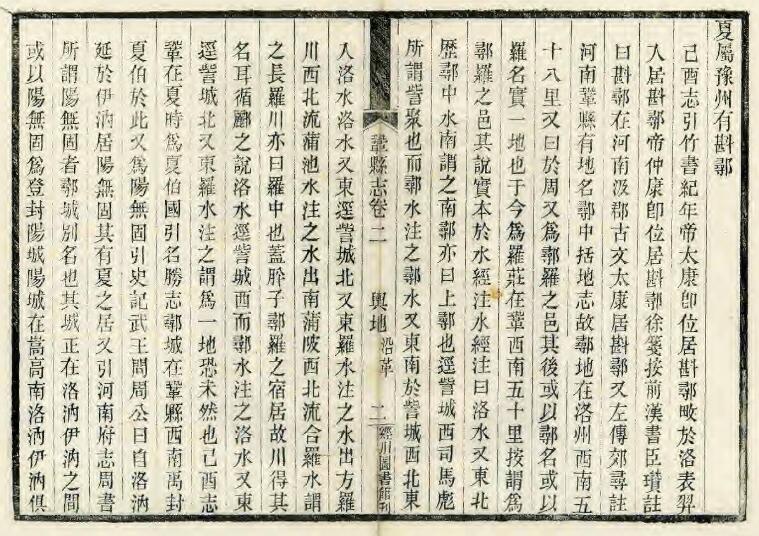 夏屬豫州有斟鄩
己酉志引竹書紀年帝太康卽位居斟鄩畋於洛表羿
入居斟鄩帝仲康卽位居斟鄩徐箋按前漢書臣瓚註
曰斟鄩在河南汲郡古文太康居斟鄩又左傳郊尋註
河南鞏縣有地名鄩中括地志故鄩地在洛州西南五
十八里又曰於周又爲鄩羅之邑其後或以鄩名或以
羅名實一地也于今爲羅莊在鞏西南五十里按謂爲
鄩羅之邑其說實本於水經注水經注曰洛水又東北
歷鄩中水南謂之南鄩亦曰上鄩也逕訾城西司馬彪
所謂訾聚也而鄩水注之鄩水又東南於訾城西北東
鞏縣志卷二
輿地 沿革
二
經川圖書館刊
入洛水洛水又東逕訾城北又東羅水注之水出方羅
川西北流蒲池水注之水出南蒲陂西北流合羅水謂
之長羅川亦曰羅中也蓋肸子鄩羅之宿居故川得其
名耳循酈之說洛水逕訾城西而鄩水注之洛水又東
逕訾城北又東羅水注之謂爲一地恐未然也己酉志
鞏在夏時爲夏伯國引名勝志鄩城在鞏縣西南禹封
夏伯於此又爲陽無固引史記武王問周公曰自洛汭
延於伊汭居陽無固其有夏之居又引河南府志周書
所謂陽無固者鄩城別名也其城正在洛汭伊汭之間
或以陽無固爲登封陽城陽城在嵩高南洛汭伊汭俱